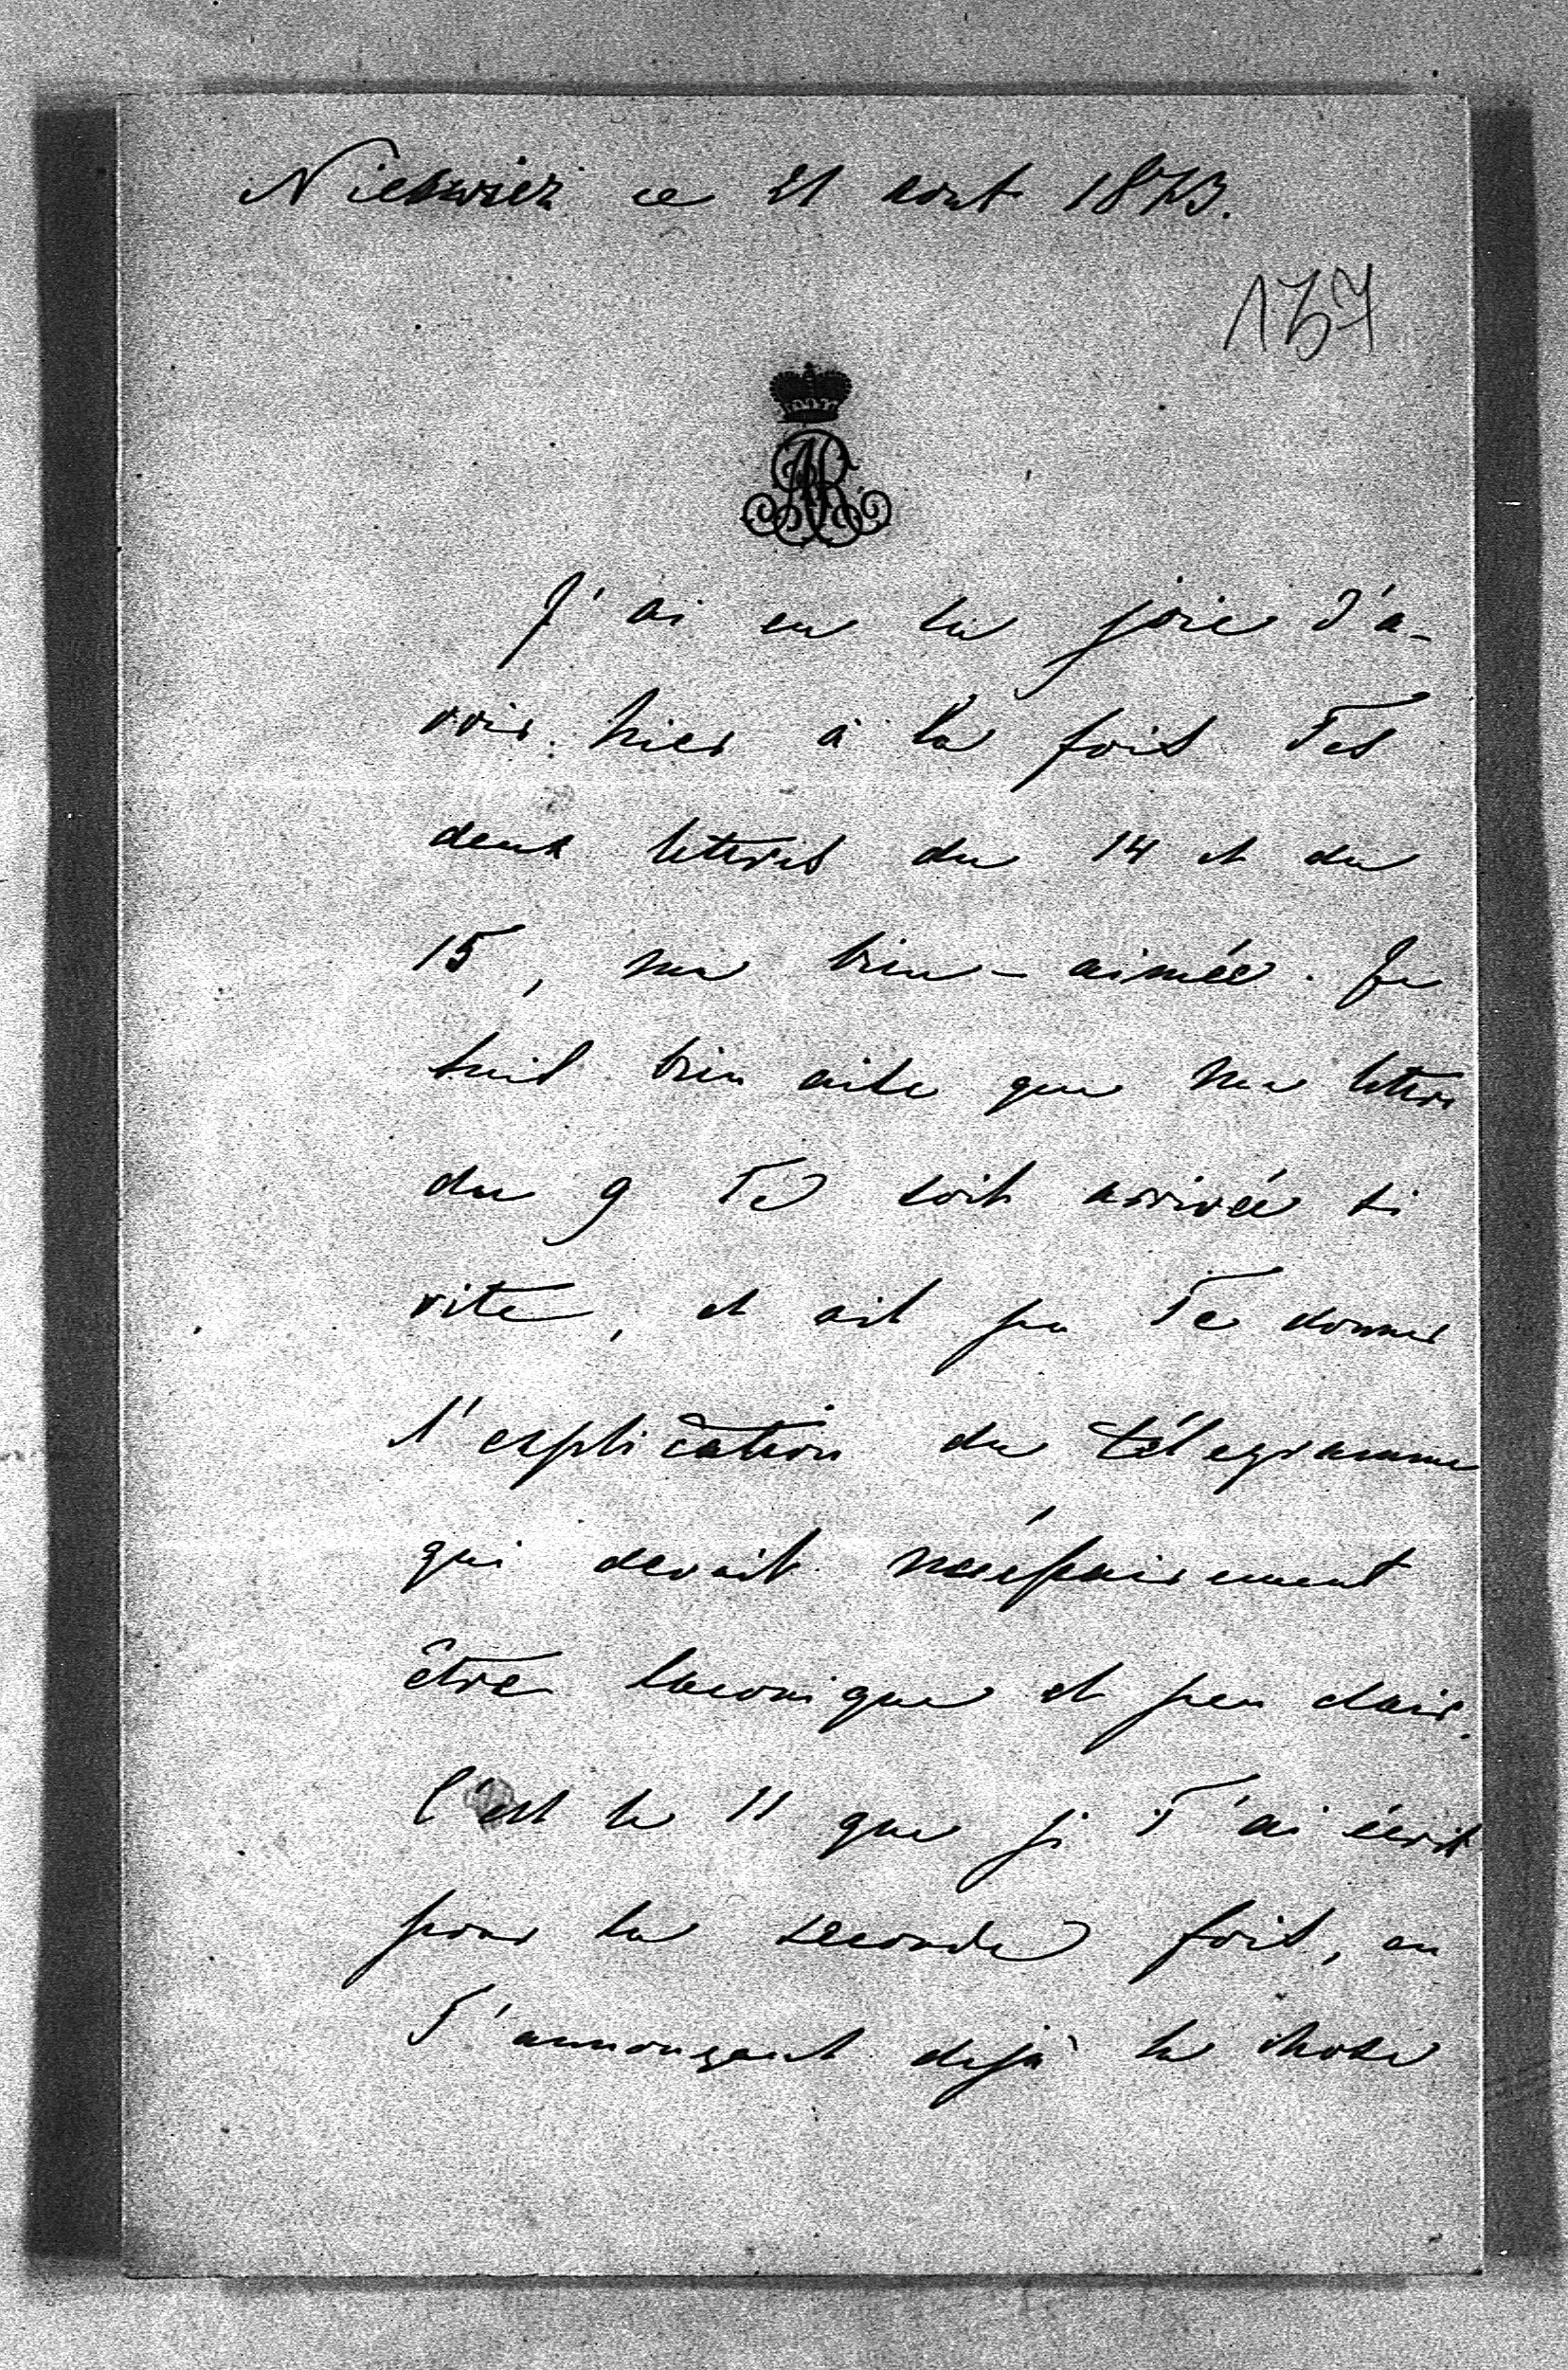 Nieswiez ce 21 aout 1873.
157
AR
J'ai eu la joie d'a-
voir hier à la fois Tes
deux lettres du 14 et du
15, ma bien-aimée. Je
suis bien aise que ma lettre
du 9 Te soit arrivée si
vite, et ait pu Te donner
l'explication du télegramme
qui devait nécessairement
être laconique et peu clair.
C'est le 11 que je T'ai écrit
pour la seconde fois, en
T'annonçant dejà la chose